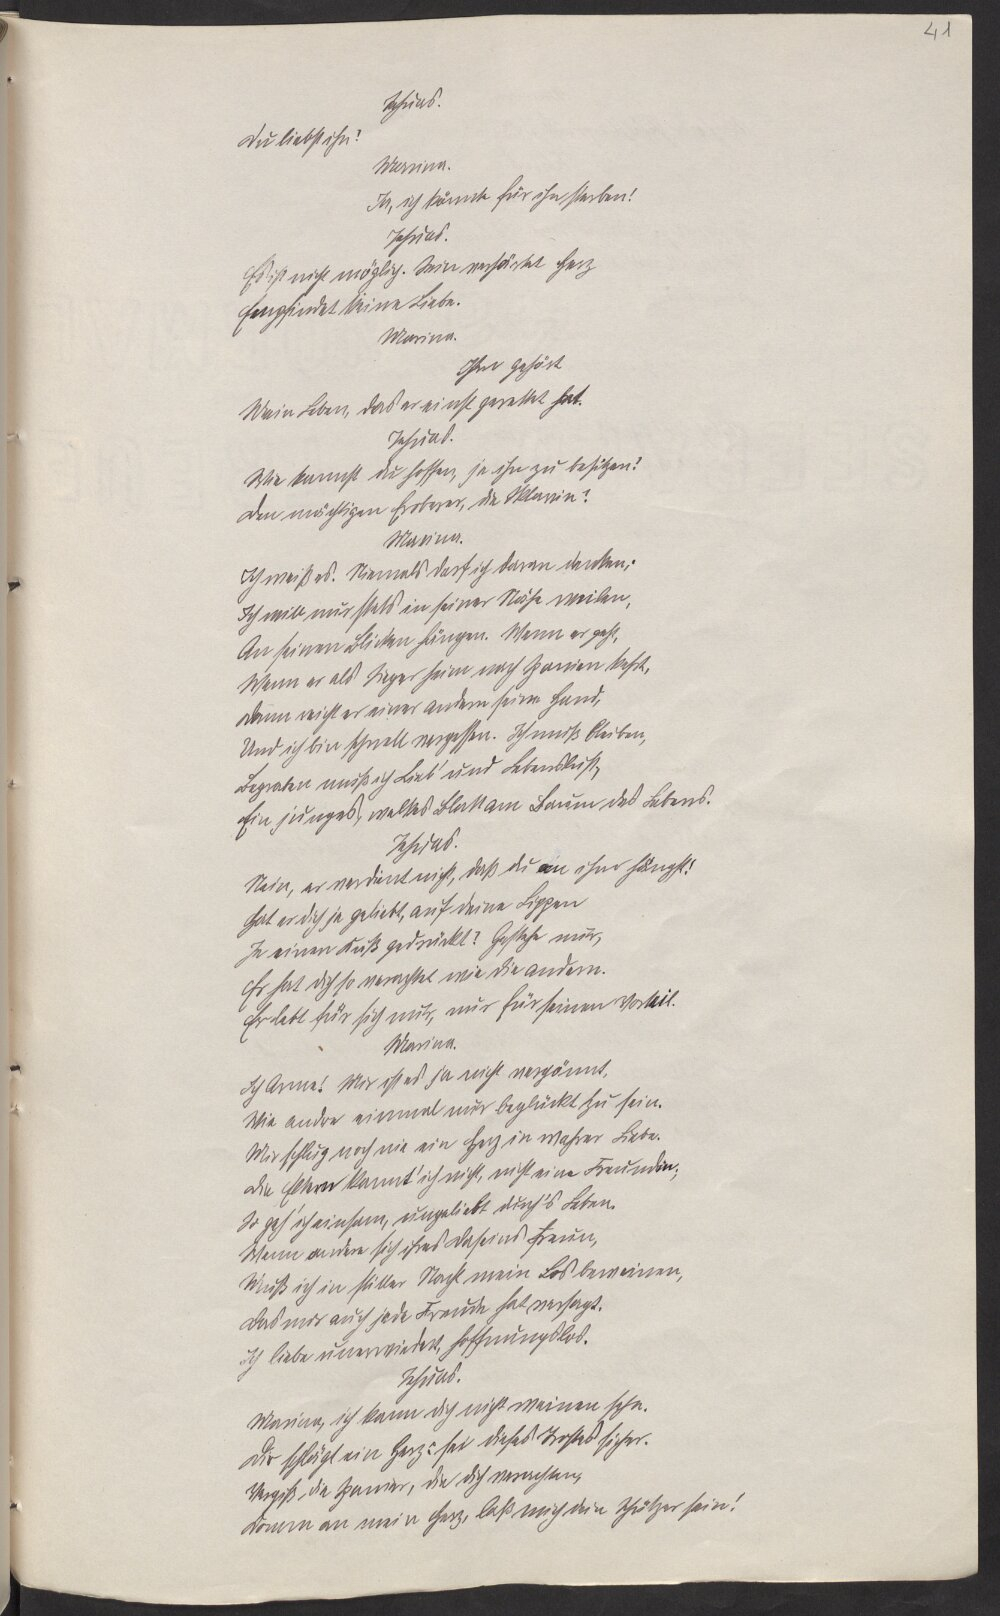 41
Tehuas.
Du liebst ihn?
Marina.
Ja, ich könnte für ihn sterben!
Tehuas.
Es ist nicht möglich. Sein verhärtet Herz
Empfindet keine Liebe.
Marina.
Ihm gehört
Mein Leben, das er einst gerettet hat.
Tehuas.
Wie kannst du hoffen, je ihn zu besitzen?
Den mächtigen Eroberer, die Sklavin?
Marina.
Ich weiß es. Niemals darf ich daran denken;
Ich will nur stets in seiner Nähe weilen,
An seinen Blicken hängen. Wenn er geht,
Wenn er als Sieger heim nach Spanien kehrt,
Dann reicht er einer andern seine Hand,
Und ich bin schnell vergessen. Ich muß bleiben,
Begraben muß ich Lieb' und Lebenslust,
Ein junges, welkes Blatt am Baum des Lebens.
Tehuas.
Nein, er verdient nicht, daß du an ihm hängst!
Hat er dich je geliebt, auf deine Lippen
Je einen Kuß gedrückt? Gestehe nur,
Er hat dich so verachtet wie die andern.
Er lebt für sich nur, nur für seinen Vorteil.
Marina.
Ich Arme! Mir ist es ja nicht vergönnt,
Wie andre einmal nur beglückt zu sein.
Mir schlug noch nie ein Herz in wahrer Liebe.
Die Eltern kannt' ich nicht, nicht eine Freundin;
So geh' ich einsam, ungeliebt durch's Leben.
Wenn andere sich ihres Daseins freun,
Muß ich in stiller Nacht mein Los beweinen,
Das mir auch jede Freude hat versagt.
Ich liebe unerwiedert, hoffnungslos.
Tehuas.
Marina, ich kann dich nicht weinen sehn.
Dir schlägt ein Herz: sei dieses Trostes sicher.
Vergiß die Spanier, die dich verachten,
Komm an mein Herz, laß mich dein Schützer sein!